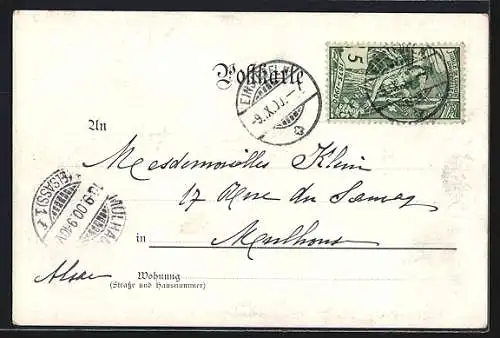 Postkarte
EINSIEDELN
-9.X.00.-7
5
An
Mesdemoiselles Klein
17 Rue du
in Mulhouse
Alsace
Wohnung
(Straße und Hausnummer)
MÜLHAU
(ELSASS) 1
9.00.9-10V